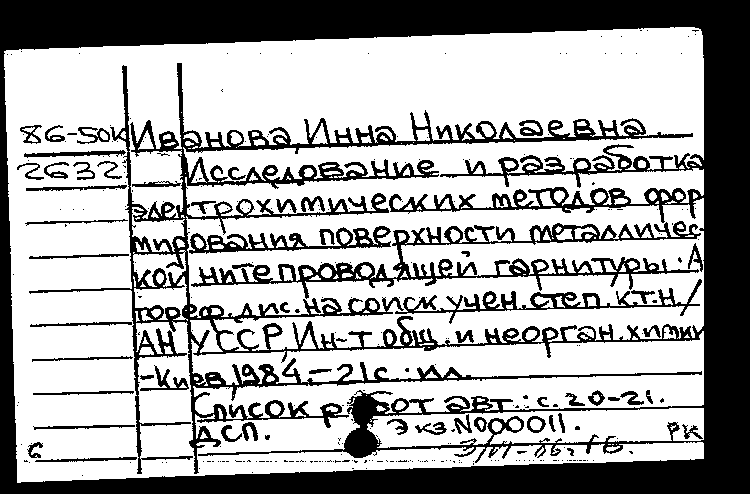 86-50к Иванова, Инна Николаевна.
2632 Исследование и разработка
электрохимических методов фор
мирования поверхности металличес-
кой нитепроводящей гарнитуры: А
тореф. дис. на соиск. учен. степ. к.т.н. /
АН УССР, Ин-т общ. и неорган. химии
-Киев, 1984.-21с.: ил.
Список работ авт.: с. 20-21.
ДСП. Экз.N000011.
РК
с